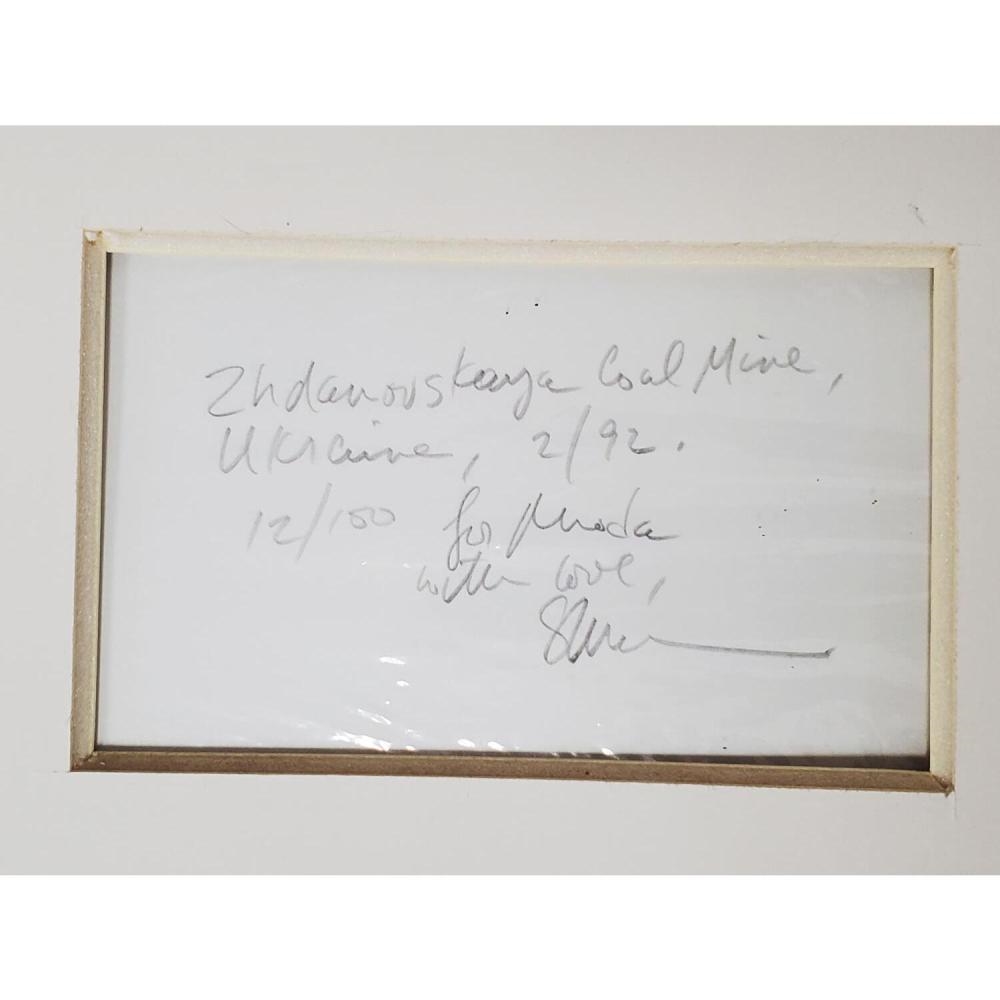 Zhdanovskaya Coal Mine,
Ukraine, 2/92.
12/100 for Rhoda
with love,